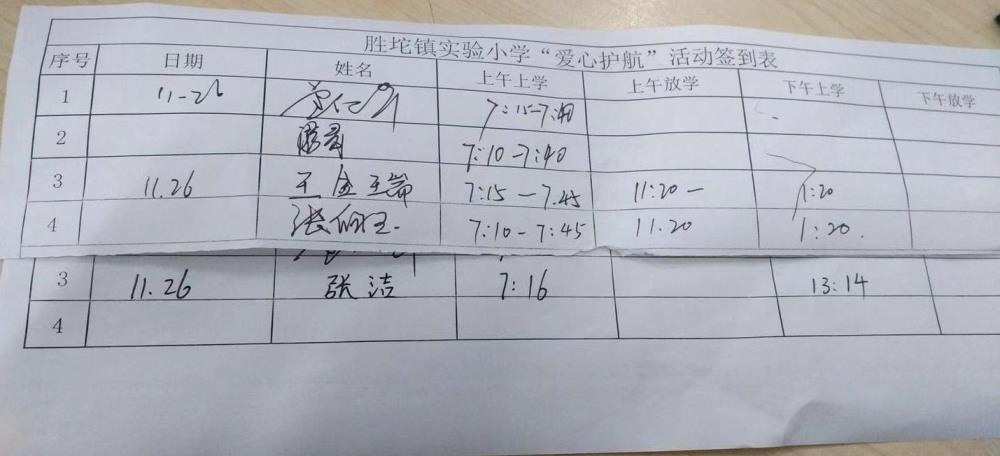 胜坨镇实验小学“爱心护航”活动签到表
序号 日期 姓名 上午上学 上午放学 下午上学 下午放学
1 11-26 7:15-7:40
2 7:10-7:40
3 11.26 7:15-7.45 11:20- 1:20
4 7:10-7:45 11.20 1:20.
3 11.26 张洁 7:16 13:14
4